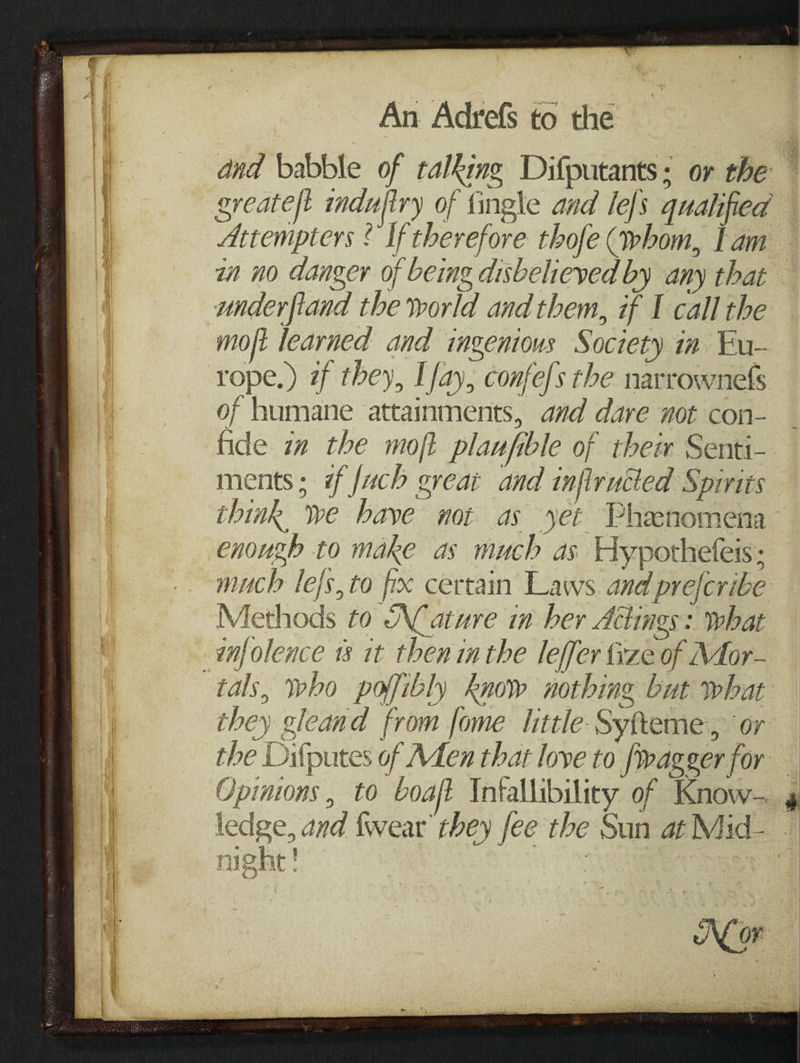 An Adreſs to the
and babble of talking Diſputants; or the
greateſt induſtry of ſingle and leſs qualified
Attempters? If therefore thoſe (whom, I am
in no danger of being disbelieved by any that
underſtand the world and them, if I call the
moſt learned and ingenious Society in Eu-
rope.) if they, I ſay, confeſs the narrowneſs
of humane attainments, and dare not con-
fide in the moſt plauſible of their Senti-
ments; if ſuch great and inſtructed Spirits
think we have not as yet Phænomena
enough to make as much as Hypotheſeis;
much leſs, to fix certain Laws and preſcribe
Methods to Nature in her Actings: what
inſolence is it then in the leſſer ſize of Mor-
tals, who poſſibly know nothing but what
they glean'd from ſome little Syſteme, or
the Diſputes of Men that love to ſwagger for
Opinions, to boaſt Infallibility of Know-
ledge, and ſwear they ſee the Sun at Mid-
night!
Nor